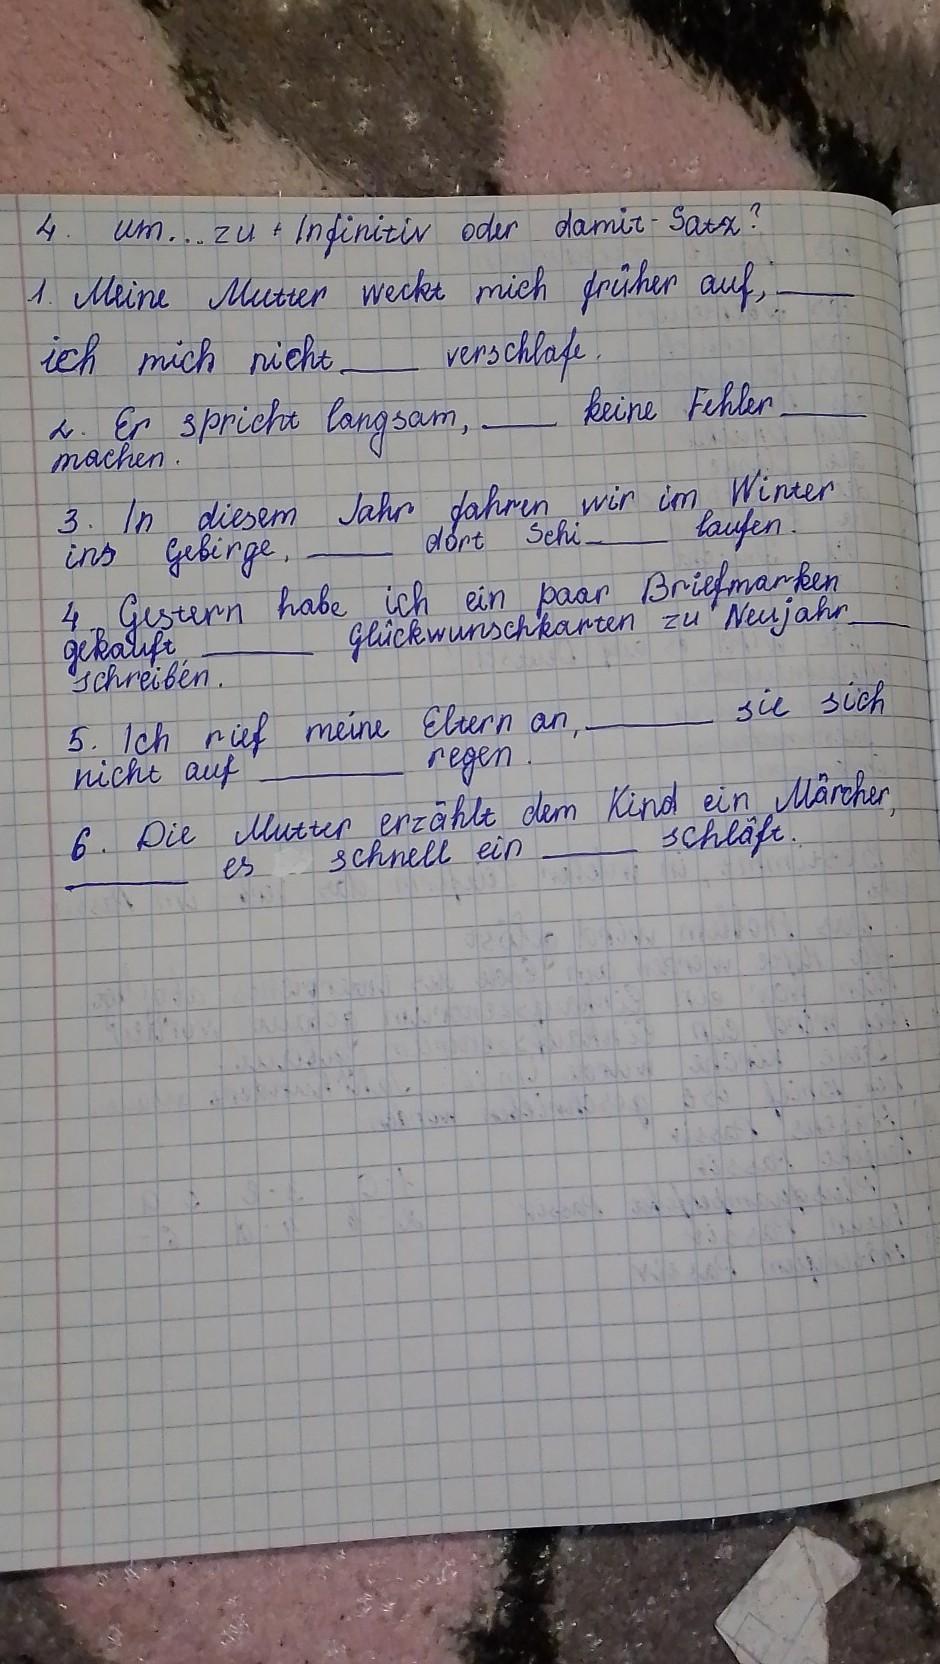 4. um...zu + Infinitiv oder damit-Satz?
1. Meine Mutter weckt mich früher auf, ____
ich mich nicht ____ verschlafe.
2. Er spricht langsam, ____ keine Fehler ____
machen.
3. In diesem Jahr fahren wir im Winter
ins Gebirge, ____ dort Schi ____ laufen.
4. Gestern habe ich ein paar Briefmarken
gekauft, ____ Glückwunschkarten zu Neujahr ____
schreiben.
5. Ich rief meine Eltern an, ____ sie sich
nicht auf ____ regen.
6. Die Mutter erzählt dem Kind ein Märcher,
____ es schnell ein ____ schläft.